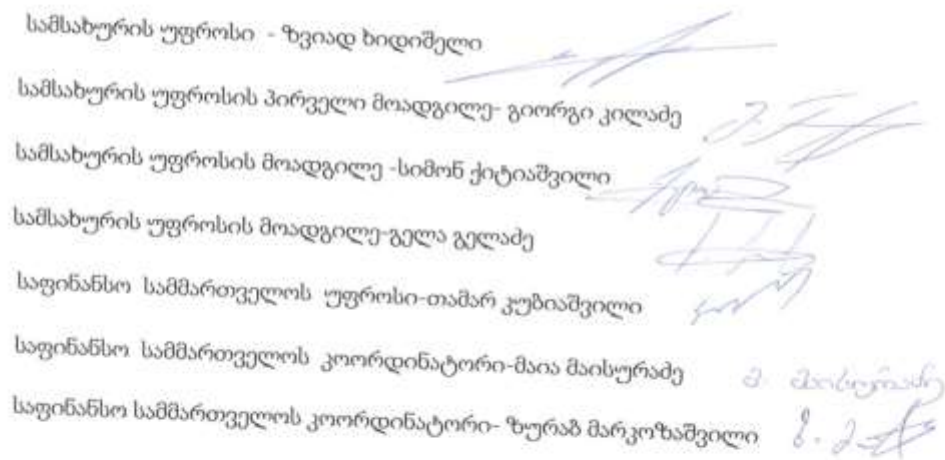 სამსახურის უფროსი - ზვიად ხიდიშელი
სამსახურის უფროსის პირველი მოადგილე- გიორგი კილაძე
სამსახურის უფროსის მოადგილე -სიმონ ქიტიაშვილი
სამსახურის უფროსის მოადგილე-გელა გელაძე
საფინანსო სამმართველოს უფროსი-თამარ კუბიაშვილი
საფინანსო სამმართველოს კოორდინატორი-მაია მაისურაძე მ. მაისურაძე
საფინანსო სამმართველოს კოორდინატორი- ზურაბ მარკოზაშვილი